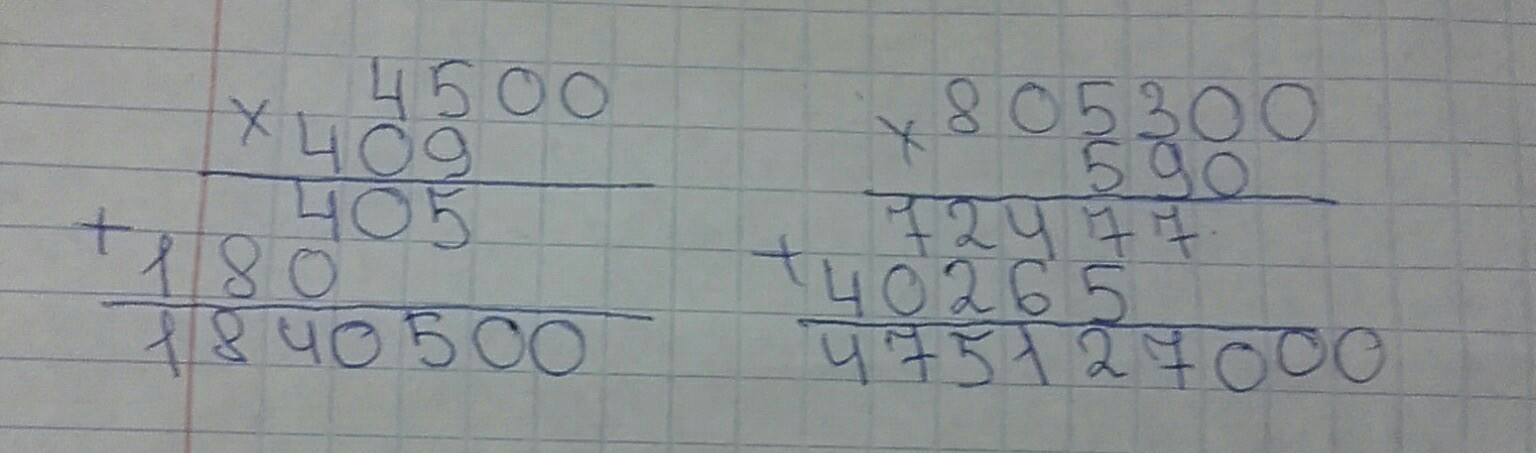 4500
× 409
405
+ 180
1840500
805300
× 590
72477
+ 40265
475127000